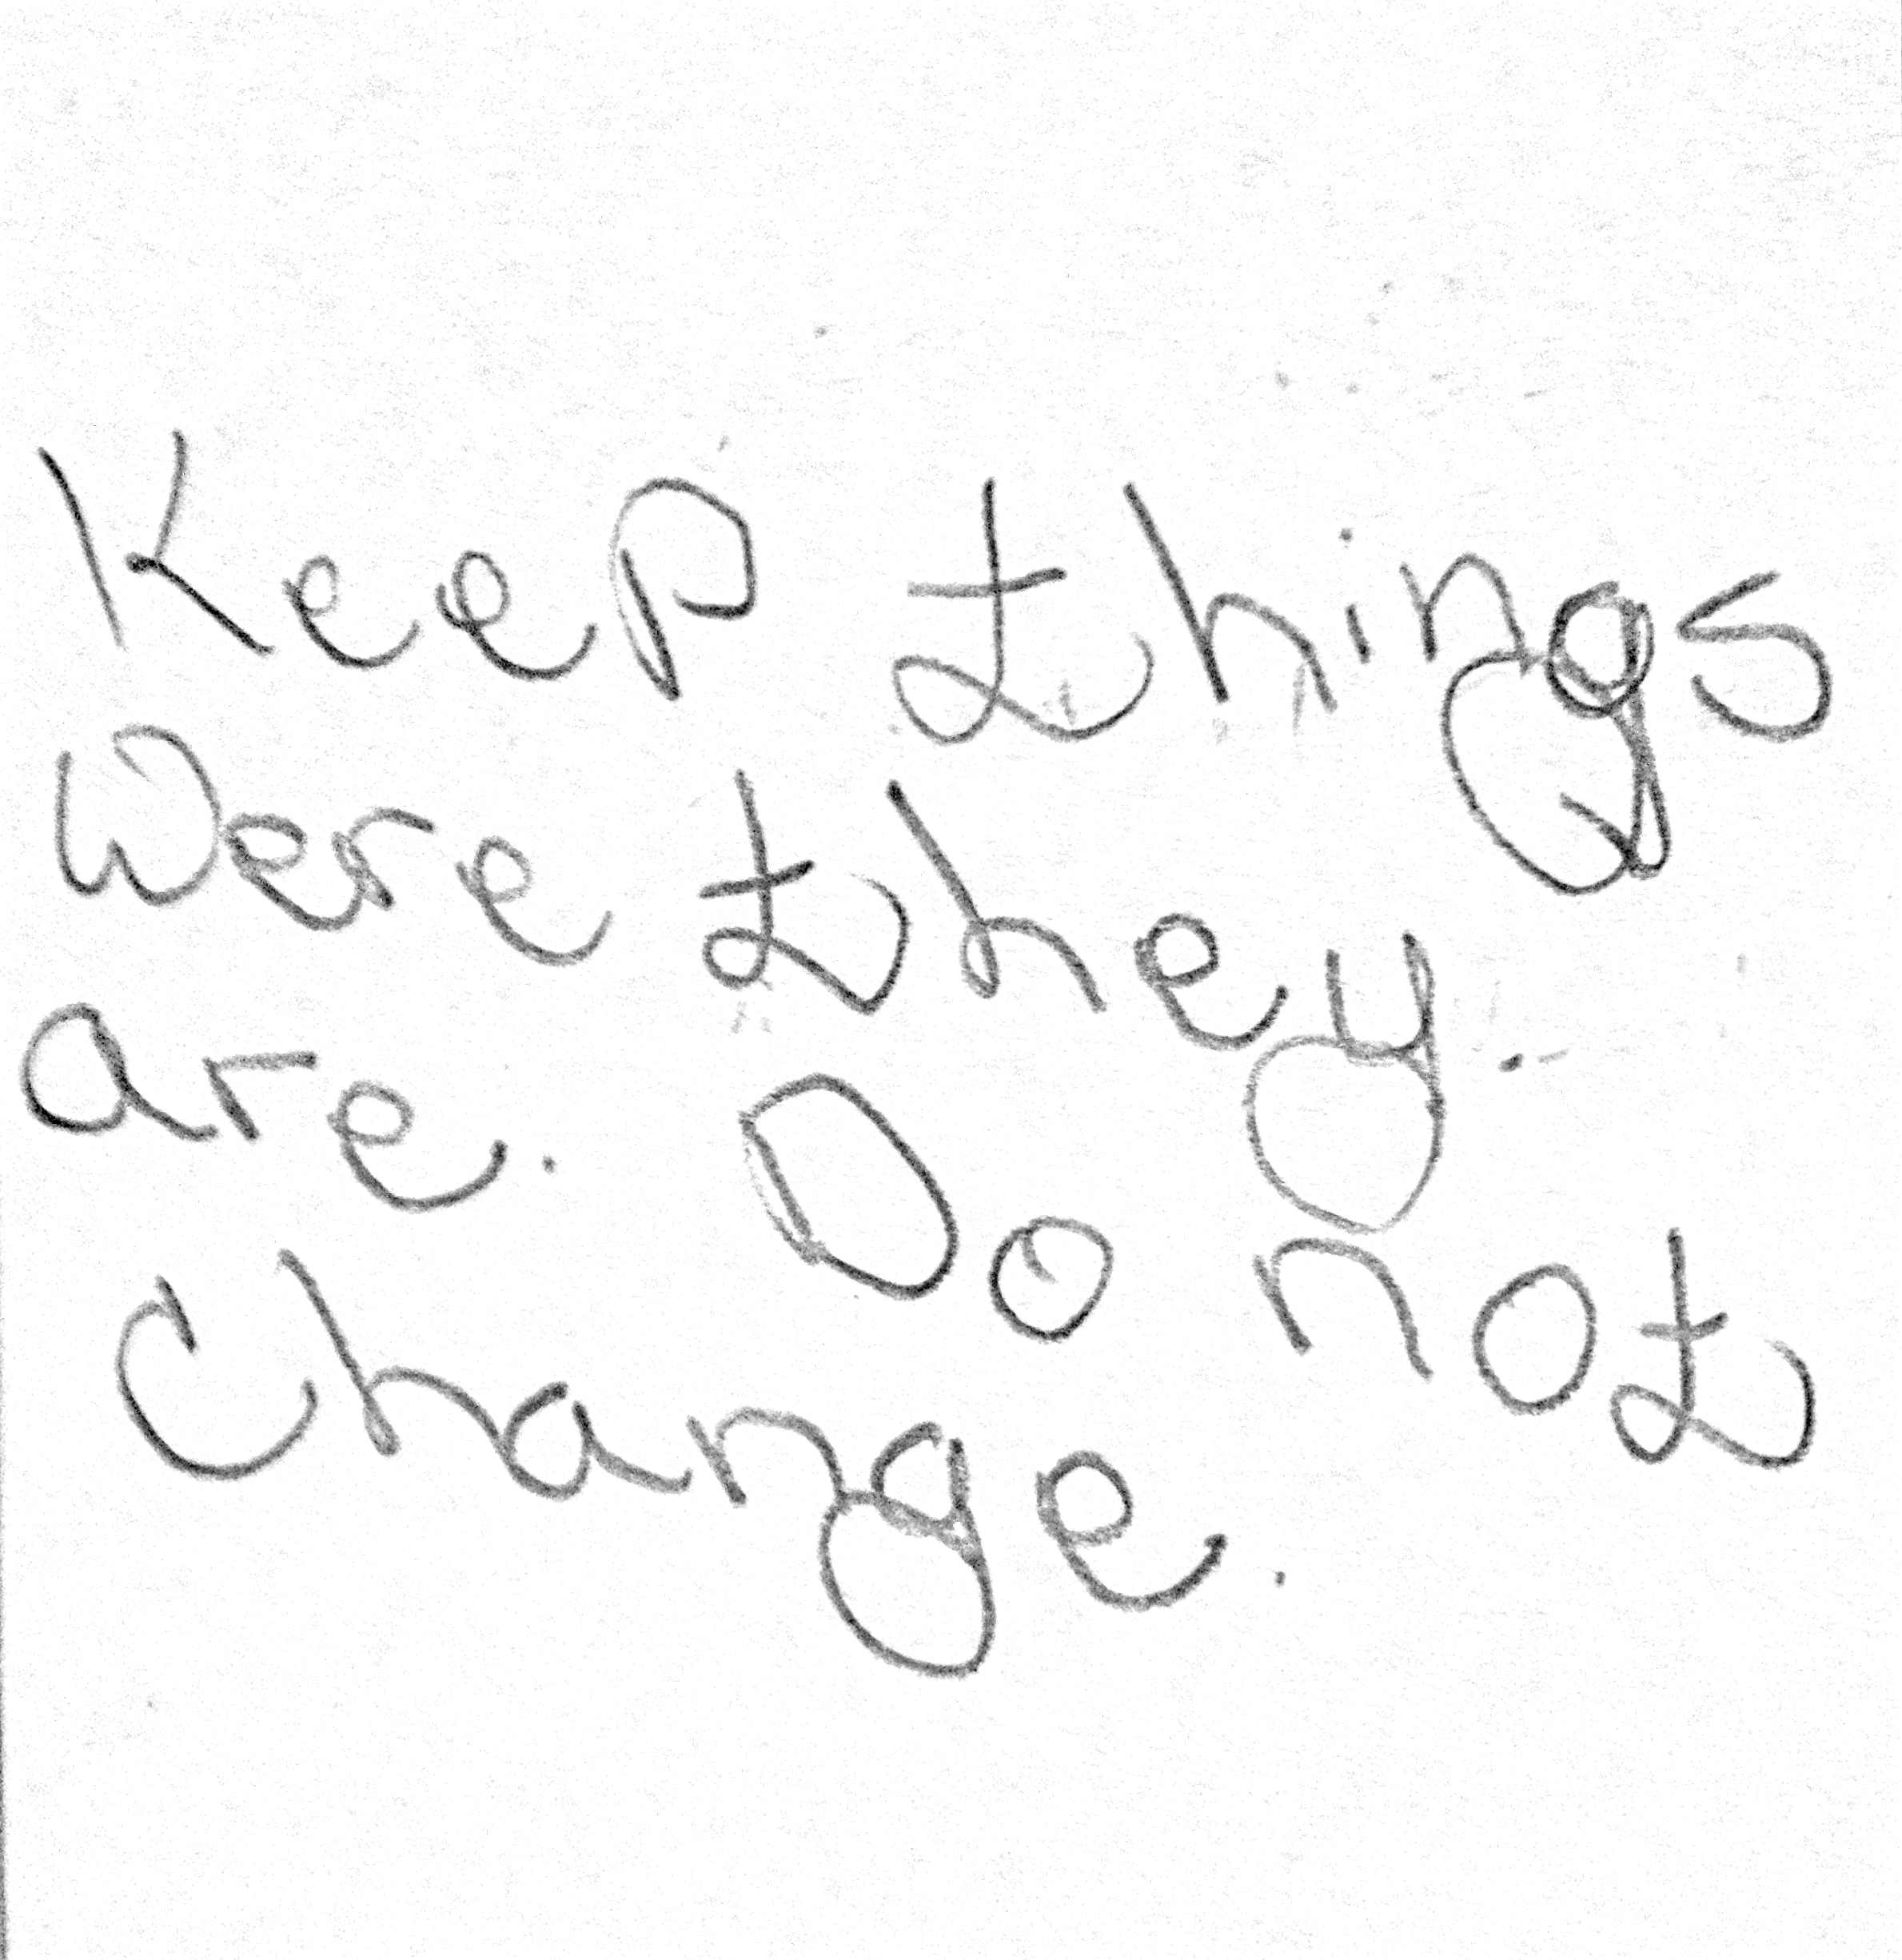 Keep things
Were they.
are. Do not
Change.